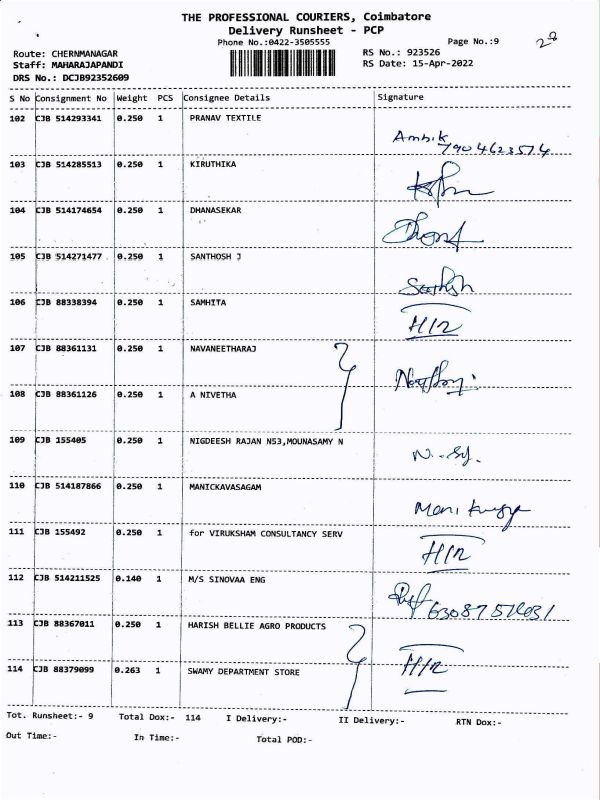 THE PROFESSIONAL COURIERS, Coimbatore
Delivery Runsheet - PCP
Phone No.:0422-3505555
Page No.:9
Route: CHERNMANAGAR
RS No.: 923526
Staff: MAHARAJAPANDI
RS Date: 15-Apr-2022
DRS No.: DCJB92352609
S No Consignment No Weight PCS Consignee Details Signature
102 CJB 514293341 0.250 1 PRANAV TEXTILE
7904623574
103 CJB 514285513 0.250 1 KIRUTHIKA
104 CJB 514174654 0.250 1 DHANASEKAR
105 CJB 514271477 0.250 1 SANTHOSH J
106 CJB 88338394 0.250 1 SAMHITA
107 CJB 88361131 0.250 1 NAVANEETHARAJ
108 CJB 88361126 0.250 1 A NIVETHA
109 CJB 155405 0.250 1 NIGDEESH RAJAN N53,MOUNASAMY N
110 CJB 514187866 0.250 1 MANICKAVASAGAM
111 CJB 155492 0.250 1 for VIRUKSHAM CONSULTANCY SERV
112 CJB 514211525 0.140 1 M/S SINOVAA ENG
113 CJB 88367011 0.250 1 HARISH BELLIE AGRO PRODUCTS
114 CJB 88379099 0.263 1 SWAMY DEPARTMENT STORE
Tot. Runsheet:- 9 Total Dox:- 114 I Delivery:- II Delivery:- RTN Dox:-
Out Time:- In Time:- Total POD:-